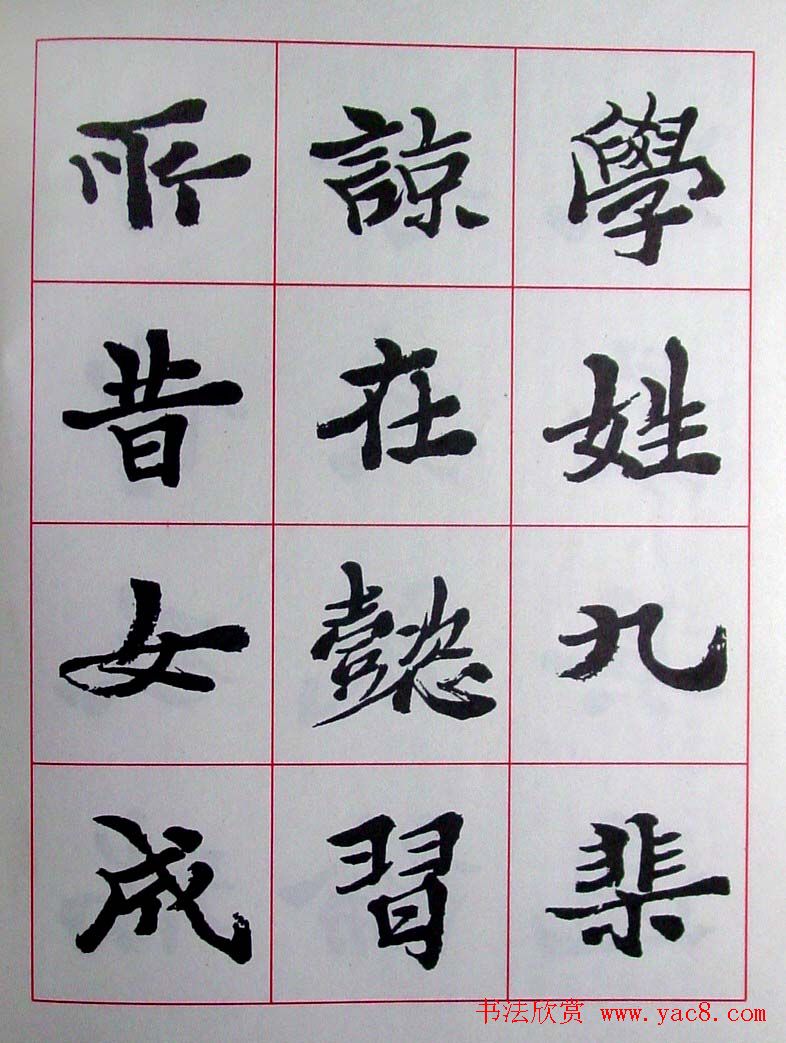 學姓九棐
諒在懿習
所昔女成
书法欣赏 www.yac8.com